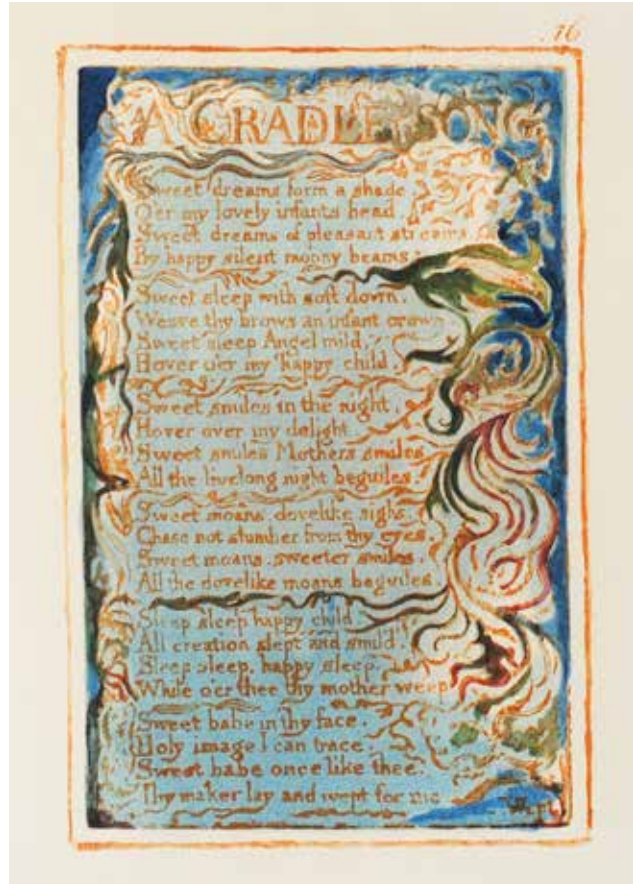 16
A CRADLE SONG
Sweet dreams form a shade
O'er my lovely infants head.
Sweet dreams of pleasant streams
By happy silent moony beams
Sweet sleep with soft down.
Weave thy brows an infant crown
Sweet sleep Angel mild,
Hover o'er my happy child.
Sweet smiles in the night.
Hover over my delight.
Sweet smiles Mothers smiles
All the livelong night beguiles.
Sweet moans, dovelike sighs,
Chase not slumber from thy eyes.
Sweet moans, sweeter smiles.
All the dovelike moans beguiles.
Sleep sleep happy child
All creation slept and smil'd.
Sleep sleep, happy sleep,
While o'er thee thy mother weep
Sweet babe in thy face,
Holy image I can trace.
Sweet babe once like thee.
Thy maker lay and wept for me